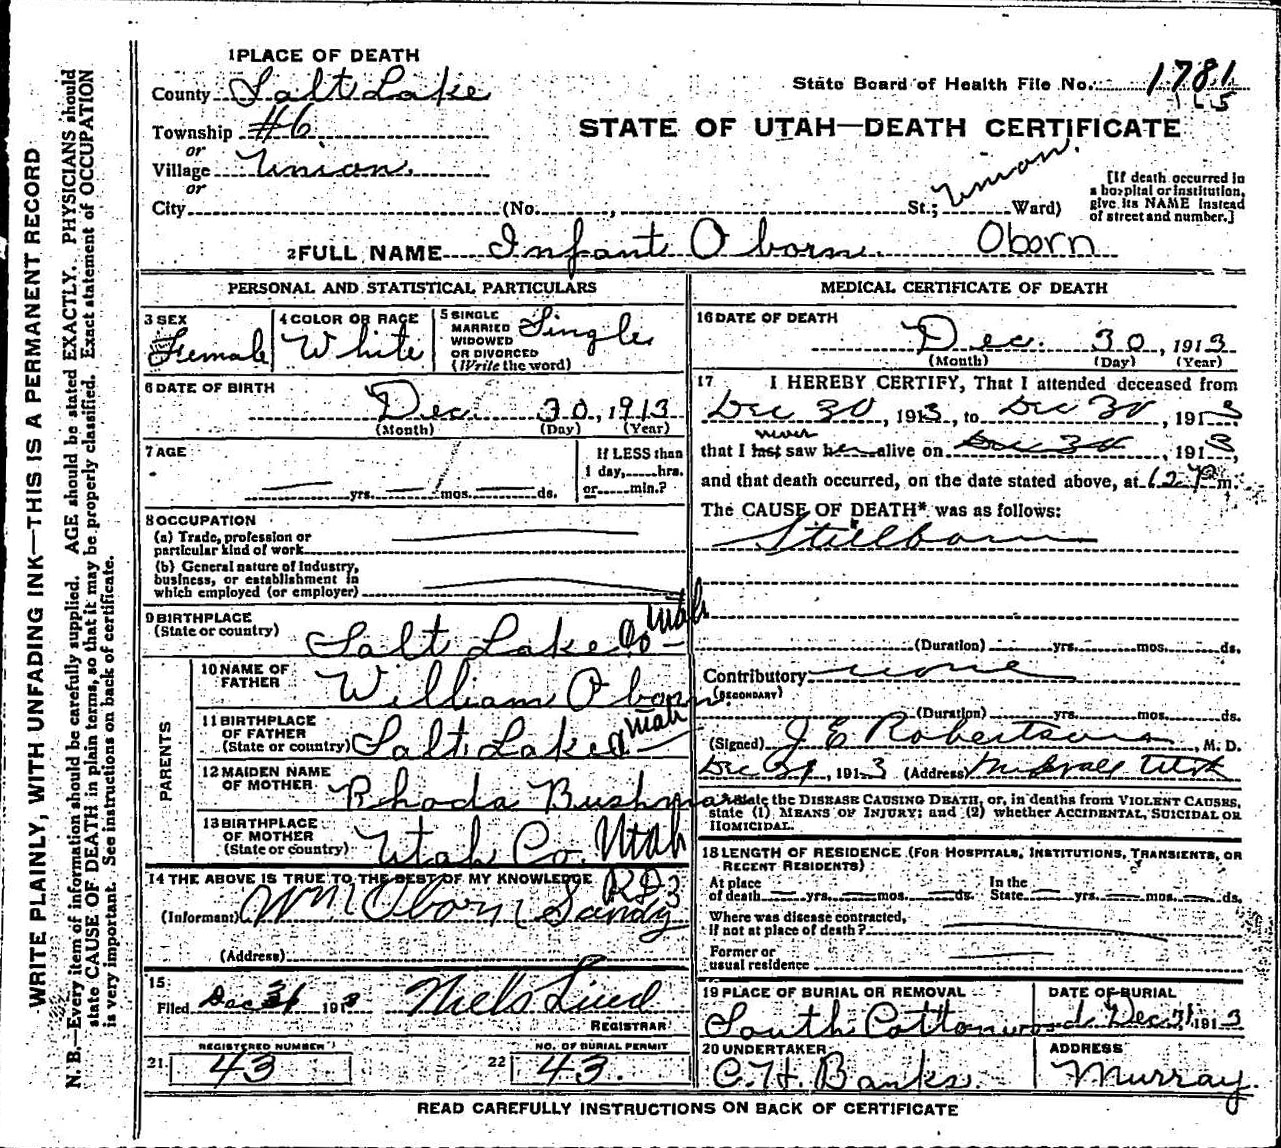 WRITE PLAINLY, WITH UNFADING INK—THIS IS A PERMANENT RECORD
N. B.—Every item of information should be carefully supplied. AGE should be stated EXACTLY. PHYSICIANS should
state CAUSE OF DEATH in plain terms, so that it may be properly classified. Exact statement of OCCUPATION
is very important. See instructions on back of certificate.
1 PLACE OF DEATH
County Salt Lake
State Board of Health File No. 1781
Township #6
165
or
STATE OF UTAH—DEATH CERTIFICATE
Village Union
or
City (No. , St.; Union Ward)
[If death occurred in
a hospital or institution,
give its NAME instead
of street and number.]
2 FULL NAME Infant Oborn. Oborn
PERSONAL AND STATISTICAL PARTICULARS
3 SEX
Female
4 COLOR OR RACE
White
5 SINGLE
MARRIED
WIDOWED
OR DIVORCED
(Write the word)
Single
6 DATE OF BIRTH
Dec. 30, 1913
(Month) (Day) (Year)
7 AGE
yrs. mos. ds.
If LESS than
1 day, hrs.
or min.?
8 OCCUPATION
(a) Trade, profession or
particular kind of work
(b) General nature of Industry,
business, or establishment in
which employed (or employer)
9 BIRTHPLACE
(State or country) Salt Lake Co Utah
PARENTS
10 NAME OF
FATHER William Oborn.
11 BIRTHPLACE
OF FATHER
(State or country) Salt Lake Utah
12 MAIDEN NAME
OF MOTHER Rhoda Bushman
13 BIRTHPLACE
OF MOTHER
(State or country) Utah Co. Utah
14 THE ABOVE IS TRUE TO THE BEST OF MY KNOWLEDGE
(Informant) Wm Oborn Sandy RD3
(Address)
15
Filed Dec 31 1913 Niels Lind
REGISTRAR
REGISTERED NUMBER
21 43
NO. OF BURIAL PERMIT
22 43.
MEDICAL CERTIFICATE OF DEATH
16 DATE OF DEATH
Dec. 30, 1913
(Month) (Day) (Year)
17 I HEREBY CERTIFY, That I attended deceased from
Dec 30, 1913, to Dec 30, 1913
never
that I last saw her alive on Dec 30, 1913,
and that death occurred, on the date stated above, at 12 P m.
The CAUSE OF DEATH* was as follows:
Stillborn
(Duration) yrs. mos. ds.
Contributory none
(SECONDARY)
(Duration) yrs. mos. ds.
(Signed) J E Robertson, M. D.
Dec 31, 1913 (Address) Midvale Utah
*State the DISEASE CAUSING DEATH, or, in deaths from VIOLENT CAUSES,
state (1) MEANS OF INJURY; and (2) whether ACCIDENTAL, SUICIDAL OR
HOMICIDAL.
18 LENGTH OF RESIDENCE (FOR HOSPITALS, INSTITUTIONS, TRANSIENTS, OR
RECENT RESIDENTS)
At place
of death yrs. mos. ds.
In the
State yrs. mos. ds.
Where was disease contracted,
If not at place of death?
Former or
usual residence
19 PLACE OF BURIAL OR REMOVAL
South Cottonwood
DATE OF BURIAL
Dec 31 1913
20 UNDERTAKER
C. H. Banks.
ADDRESS
Murray.
READ CAREFULLY INSTRUCTIONS ON BACK OF CERTIFICATE